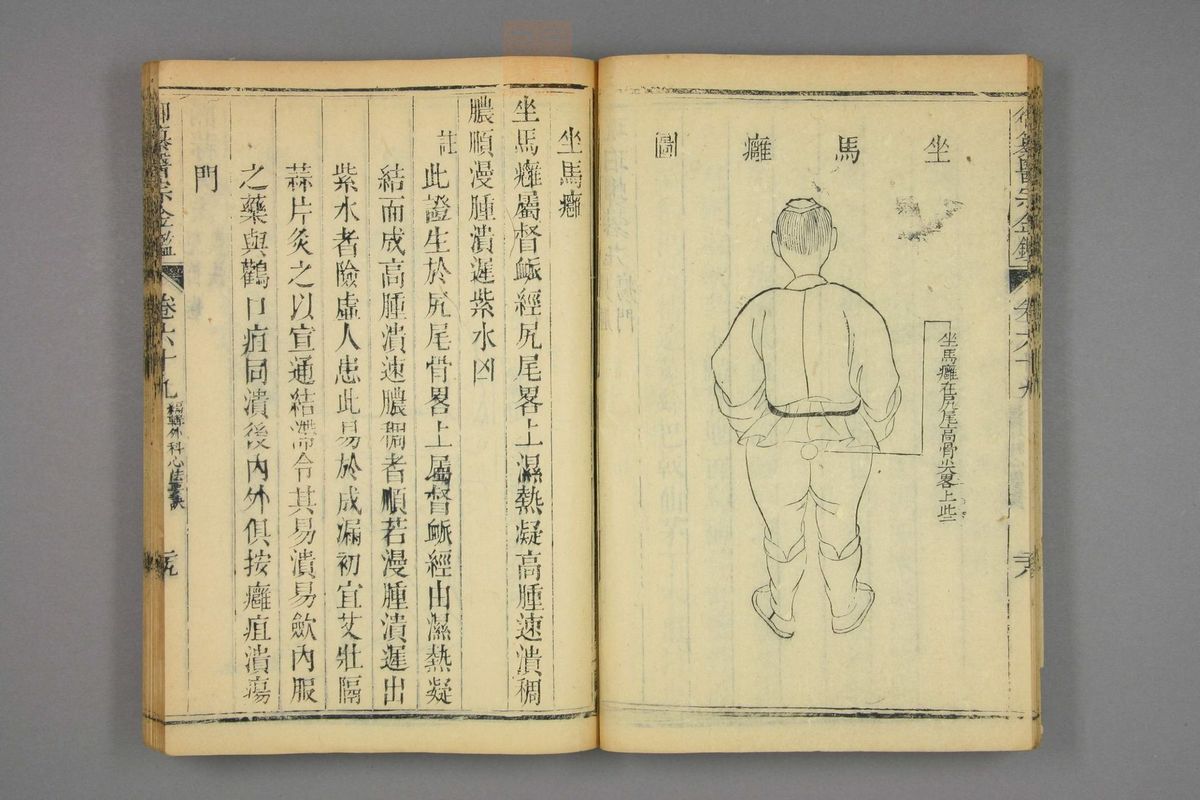 坐馬癰圖
坐馬癰在尻尾高骨尖畧上些
坐馬癰
坐馬癰屬督脈經尻尾畧上濕熱凝高腫速潰稠
膿順漫腫潰遲紫水凶
註此證生於尻尾骨畧上屬督脈經由濕熱凝
結而成高腫潰速膿稠者順若漫腫潰遲出
紫水者險虛人患此易於成漏初宜艾壯隔
蒜片灸之以宣通結滯令其易潰易斂內服
之藥與鸛口疽同潰後內外俱按癰疽潰瘍
門
御纂醫宗金鑑
卷六十九
編輯外科心法要訣
二十九
御纂醫宗金鑑
卷六十九
二十八